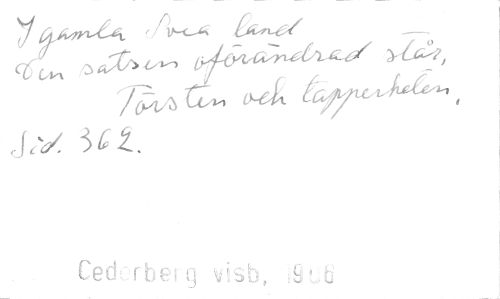 I gamla Svea land
Den satsen oförändrad står,
Törsten och tapperheten.
Sid. 362.
Cederberg visb, 1906